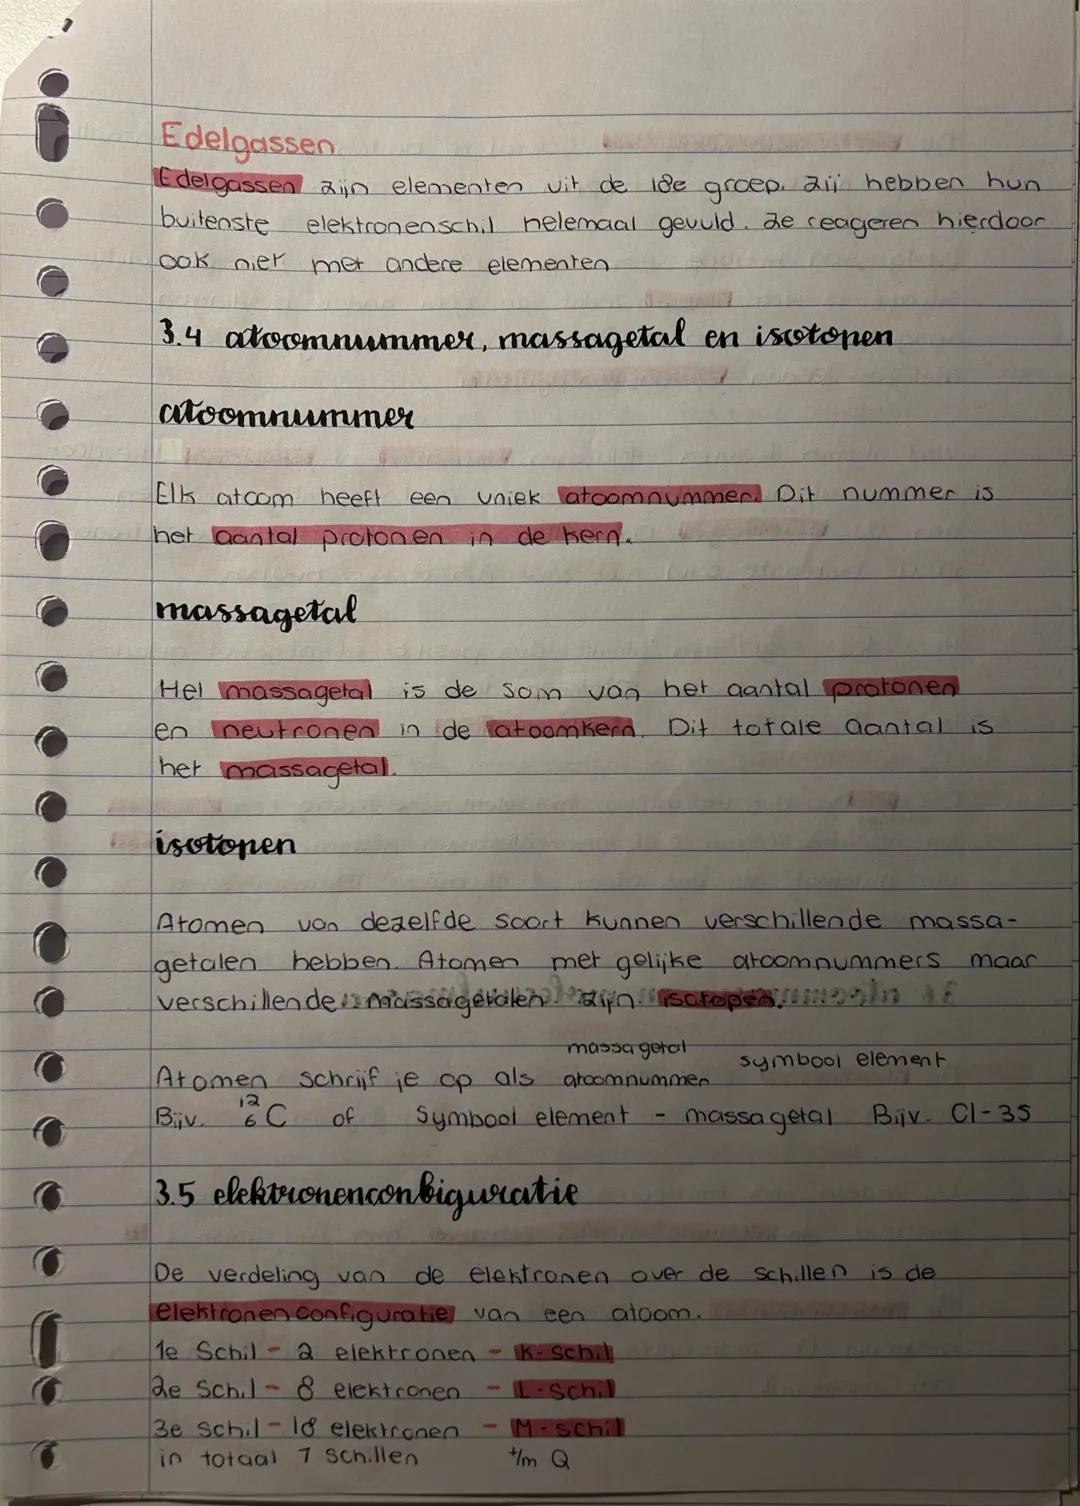 Edelgassen
Edelgassen zijn elementen uit de 18e groep. zij hebben hun
buitenste elektronenschil helemaal gevuld. Ze reageren hierdoor
ook niet met andere elementen
3.4 atoomnummer, massagetal en isotopen
atoomnummer
Elk atoom heeft een uniek atoomnummer. Dit nummer is
het aantal protonen in de kern.
massagetal
Het massagetal is de som van het aantal protonen
en neutronen in de atoomkern. Dit totale aantal is
het massagetal.
isotopen
Atomen van dezelfde soort kunnen verschillende massa-
getalen hebben. Atomen met gelijke atoomnummers maar
verschillende massagetalen zijn isotopen.
massagetal
symbool element
Atomen schrijf je op als atoomnummer
Bijv. 12 6 C of Symbool element - massagetal Bijv. Cl-35
3.5 elektronenconfiguratie
De verdeling van de elektronen over de schillen is de
elektronenconfiguratie van een atoom.
1e Schil - 2 elektronen - K-schil
2e Schil - 8 elektronen - L-schil
3e schil - 18 elektronen - M-schil
in totaal 7 schillen t/m Q